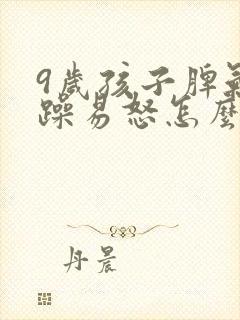 9歲孩子脾氣
躁易怒怎麼
丹晨